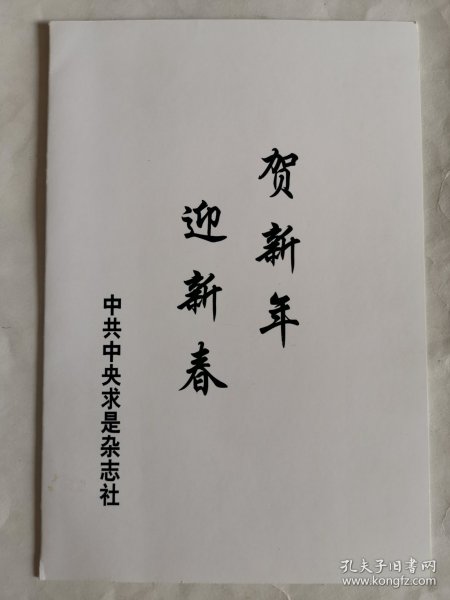 贺新年
迎新春
中共中央求是杂志社
孔夫子旧书网
www.kongfz.com